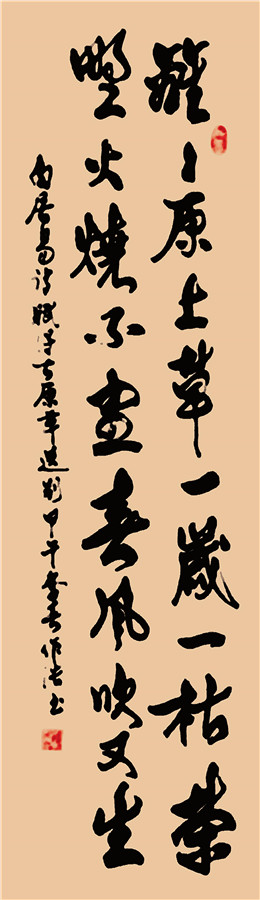 離々原上草一歲一枯榮
野火燒不盡春風吹又生
白居易詩賦得古原草送別甲午春作書